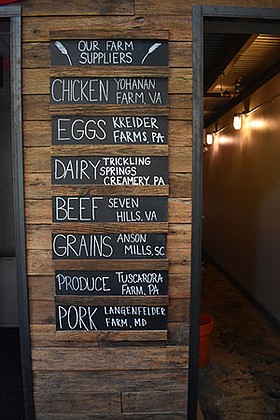 OUR FARM
SUPPLIERS
CHICKEN YOHANAN
FARM, VA
EGGS KREIDER
FARMS, PA
DAIRY TRICKLING
SPRINGS
CREAMERY PA
BEEF SEVEN
HILLS, VA
GRAINS ANSON
MILLS, SC
PRODUCE TUSCARORA
FARM, PA
PORK LANGENFELDER
FARM, MD